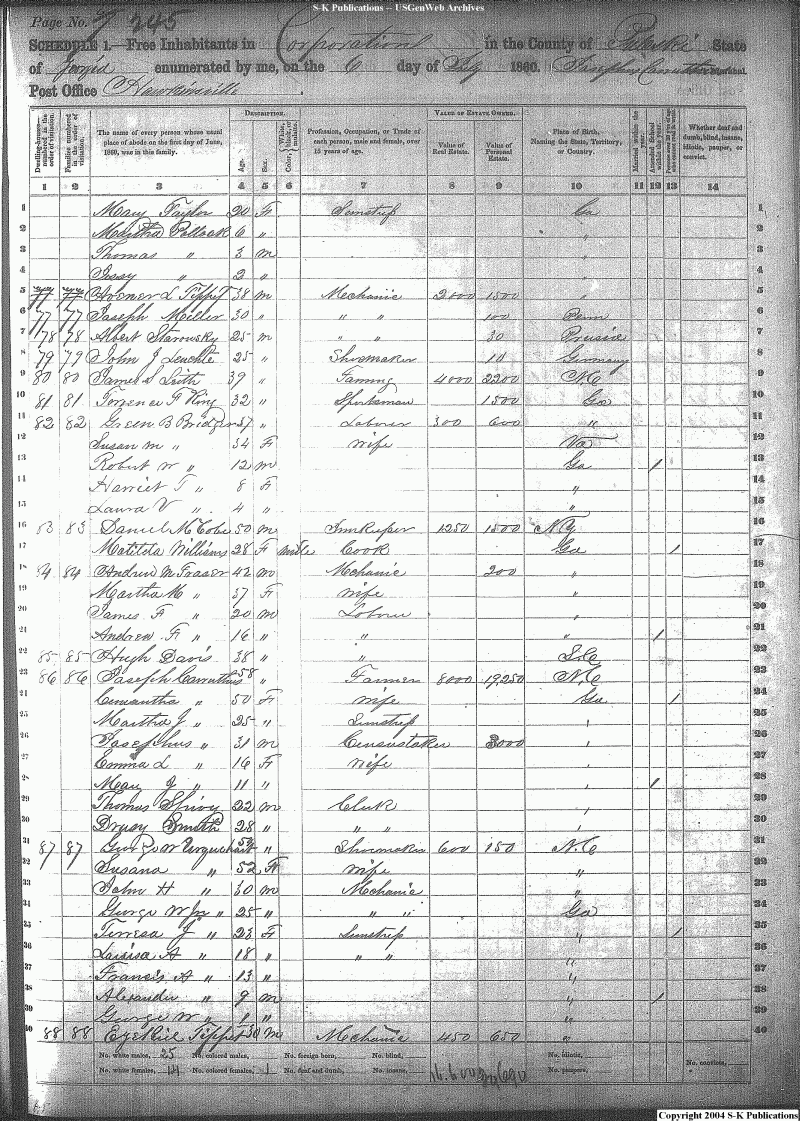 S-K Publications -- USGenWeb Archives
Page No. 7 245
SCHEDULE 1.—Free Inhabitants in Corporation in the County of Pulaski State
of Georgia enumerated by me, on the 6 day of July 1860. Josephus Carruthers Ass't Marshal.
Post Office Hawkinsville
DESCRIPTION. VALUE OF ESTATE OWNED.
Dwelling-houses—numbered in the order of visitation. Families numbered in the order of visitation. The name of every person whose usual place of abode on the first day of June, 1860, was in this family. Age. Sex. Color, {White, black, or mulatto. Profession, Occupation, or Trade of each person, male and female, over 15 years of age. Value of Real Estate. Value of Personal Estate. Place of Birth, Naming the State, Territory, or Country. Married within the year. Attended School within the year. Persons over 20 y'rs of age who cannot read & write. Whether deaf and dumb, blind, insane, idiotic, pauper, or convict.
1 2 3 4 5 6 7 8 9 10 11 12 13 14
1 Mary Taylor 20 F Semstress Ga 1
2 Martha Pollock 6 " " 2
3 Thomas " 3 m " 3
4 " 2 " " 4
5 77 77 Homer L Tippit 38 m Mechanic 2000 1500 " 5
6 77 77 Joseph Miller 30 " " " 100 Penn 6
7 78 78 Albert Starowsky 25 m " " 30 Prussia 7
8 79 79 John J Leuchte 25 " Shoemaker 10 Germany 8
9 80 80 James S Lith 39 " Faming 4000 2200 N.C 9
10 81 81 Torrence F King 32 " Sportsman 1500 Ga 10
11 82 82 Green B Bridgers 37 " Laborer 300 600 " 11
12 Susan m " 34 F wife Va 12
13 Robert W " 12 m Ga / 13
14 Harriet T " 8 F " 14
15 Laura V " 4 " " 15
16 83 83 Daniel McCabe 50 m Innkeeper 1250 1500 N Y 16
17 Matilda Williams 28 F Cook Ga / 17
18 84 84 Andrew M Fraser 42 m Mechanic 200 " 18
19 Martha M " 37 F wife " 19
20 James F " 20 m Laborer " 20
21 Andrew F " 16 " " " / 21
22 85 85 Hugh Davis 38 " " S.C 22
23 86 86 Joseph Carruthers 58 " Farmer 8000 19,250 N.C 23
24 " 50 F wife Ga / 24
25 Martha J " 25 " Semstress " 25
26 Josephus " 31 m Censustaker 3000 " 26
27 Emma L " 16 F wife " 27
28 Mary J " 11 " " / 28
29 Thomas Shivy 22 m Clerk " 29
30 Drury Smith 28 " " " " 30
31 87 87 George W Urquehart 54 " Shoemaker 600 150 N.C 31
32 Susana " 52 F wife " 32
33 John H " 30 m Mechanic " 33
34 George W Jr " 25 " " " Ga 34
35 Terresa J " 23 F Semstress " / 35
36 Louisa A " 18 " " " " 36
37 Francis A " 13 " " 37
38 Alexander " 9 m " / 38
39 George W " 1 " " 39
40 88 88 Ezekiel Tippet 30 m Mechanic 450 650 " 40
No. white males, 25 No. colored males, No. foreign born, No. blind, No. idiotic, No. convicts,
No. white females, 14 No. colored females, 1 No. deaf and dumb, No. insane, No. paupers,
Copyright 2004 S-K Publications